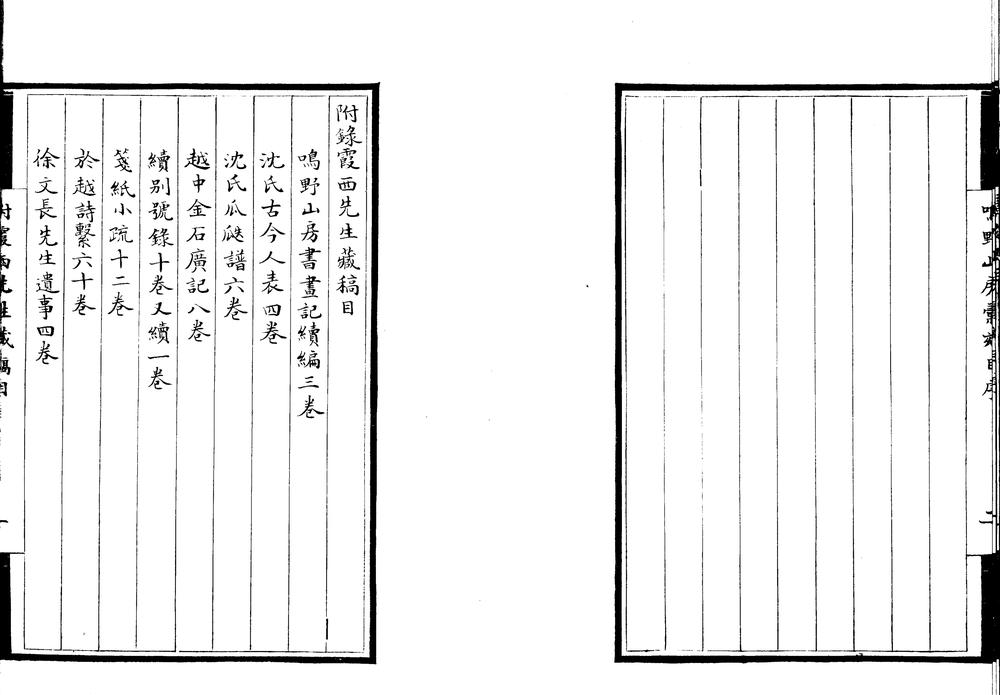 鳴野山房彙刻目序
二
附錄霞西先生藏稿目
鳴野山房書畫記續編三卷
沈氏古今人表四卷
沈氏瓜瓞譜六卷
越中金石廣記八卷
續別號錄十卷又續一卷
箋紙小疏十二卷
於越詩繫六十卷
徐文長先生遺事四卷
附霞西先生藏稿目
一